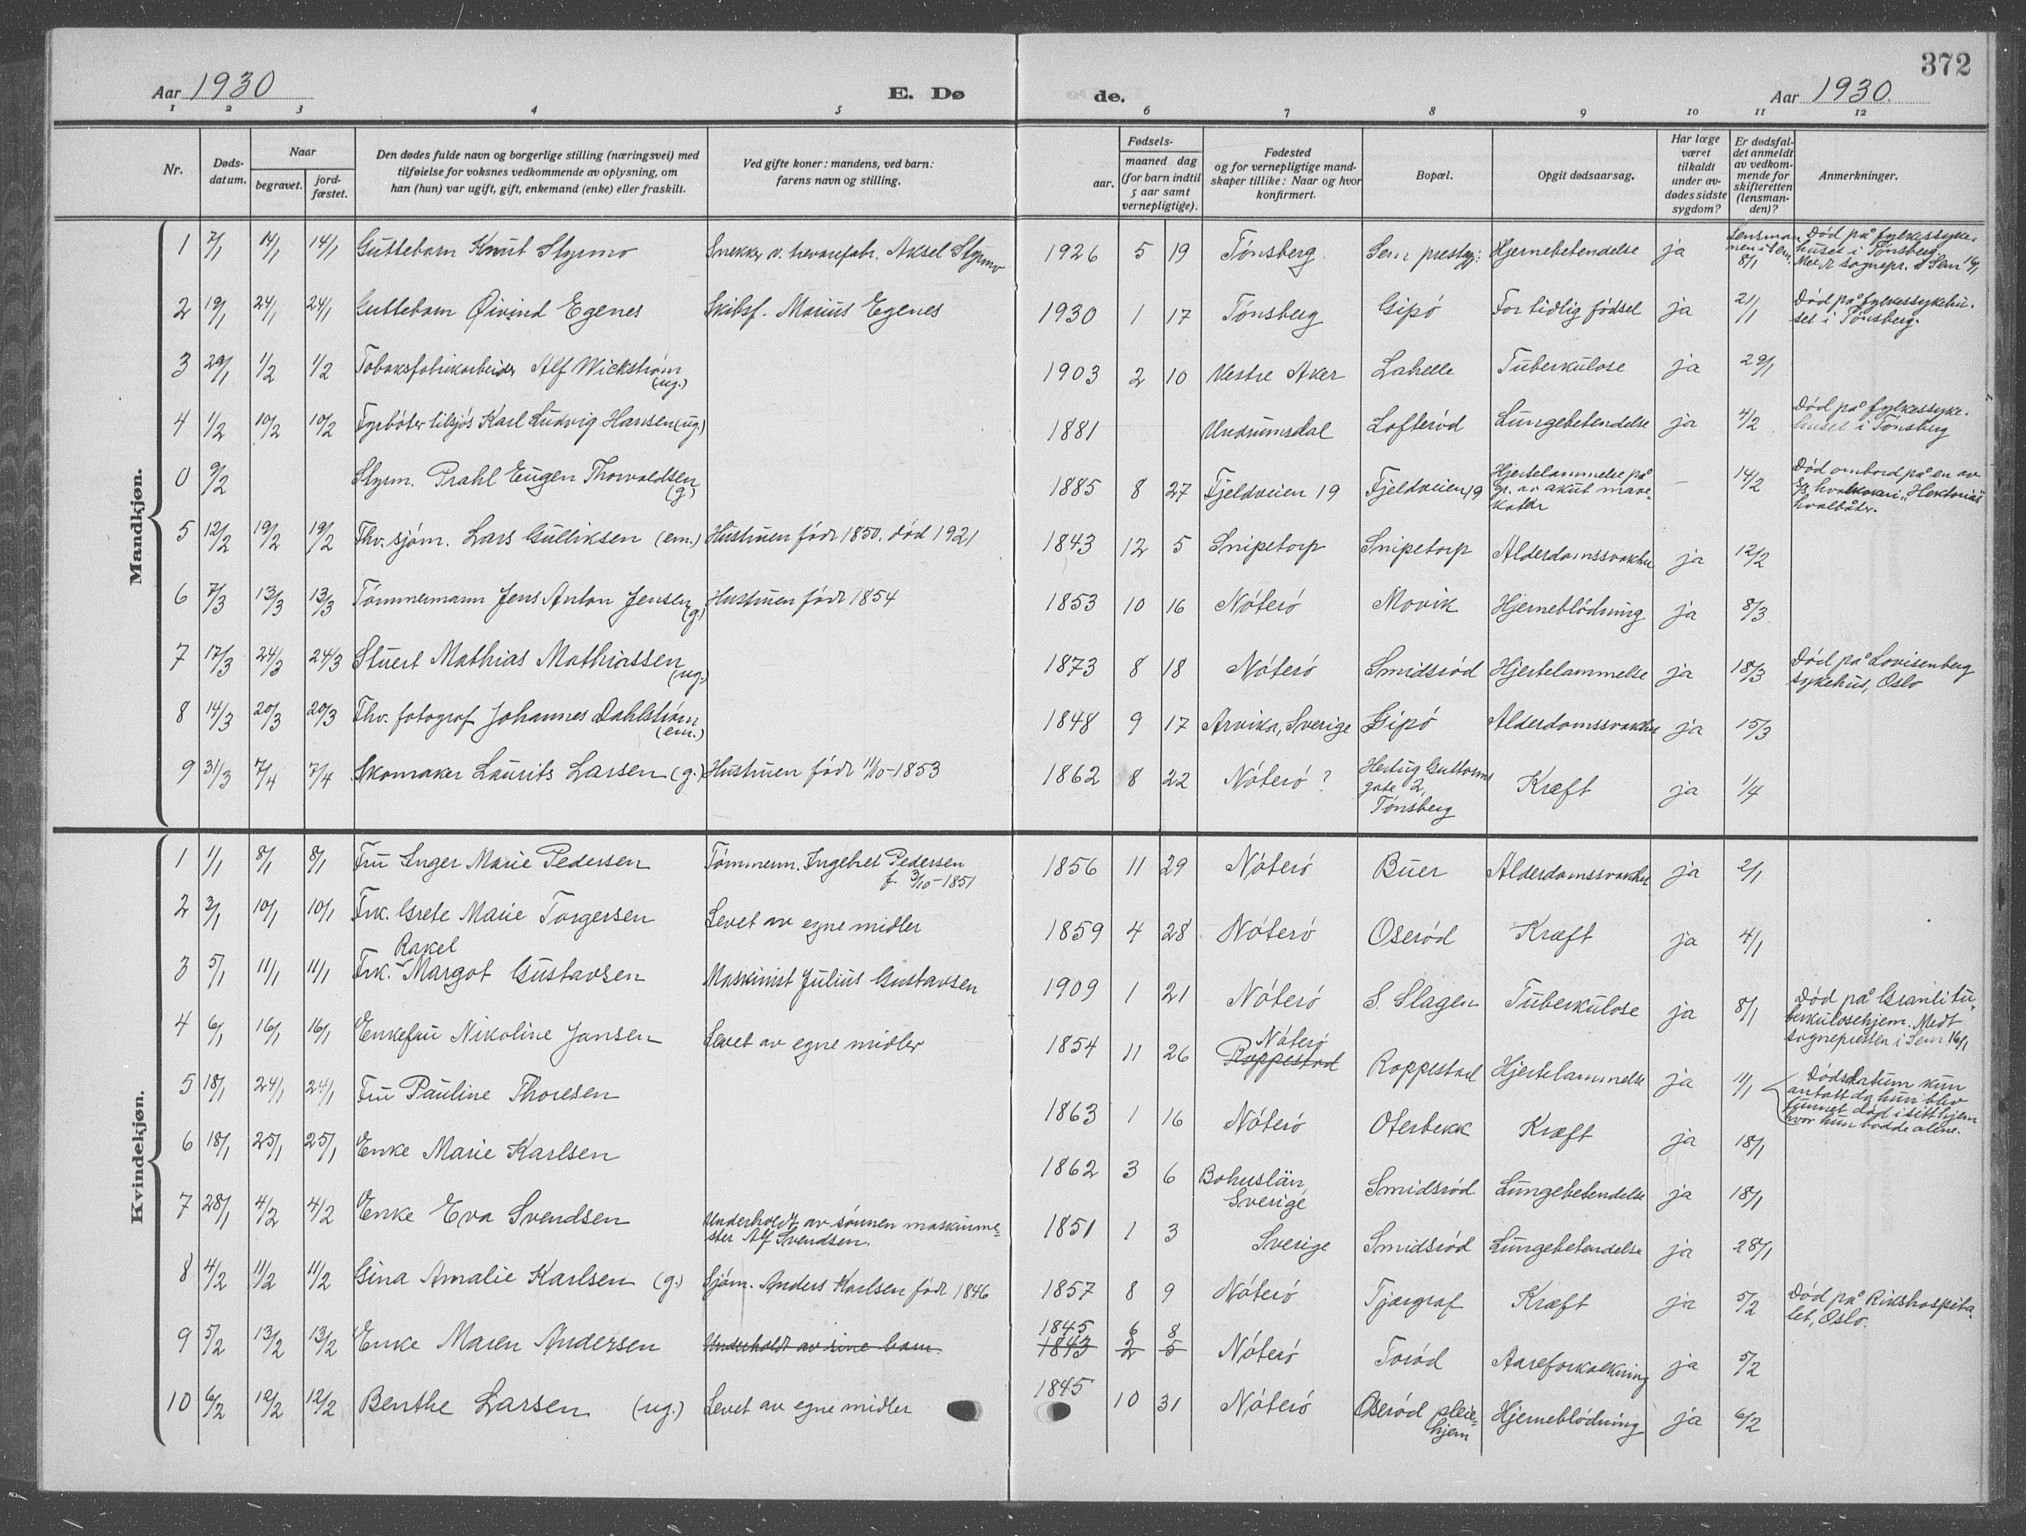 372
Aar 1930 E. Dø de. Aar 1930.
1 2 3 4 5 6 7 8 9 10 11 12
Nr. Dødsdatum. Naar begravet. jordfæstet.
Den dødes fulde navn og borgerlige stilling (næringsvei) med tilføielse for voksnes vedkommende av oplysning, om han (hun) var ugift, gift, enkemand (enke) eller fraskilt.
Ved gifte koner: mandens, ved barn: farens navn og stilling.
Fødsels- aar. maaned dag (for barn indtil 5 aar samt vernepligtige).
Fødested og for vernepligtige mandskaper tillike: Naar og hvor konfirmert.
Bopæl.
Opgit dødsaarsag.
Har læge været tilkaldt under avdødes sidste sygdom?
Er dødsfaldet anmeldt av vedkommende for skifteretten (lensmanden)?
Anmerkninger.
Mandkjøn.
1 7/1 14/1 14/1 Guttebarn Knut Styrmo Snekker v. trevarefabr. Aksel Styrmo 1926 5 19 Tønsberg Sem prestegj: Hjernebetendelse ja Lensmannen i Sem. 8/1 Död på fylkessykehuset i Tønsberg. Medt sognepr. i Sem 16/1
2 19/1 24/1 24/1 Guttebarn Øivind Egenes Skibsf. Marius Egenes 1930 1 17 Tønsberg Gipö For tidlig födsel ja 21/1 Död på fylkessykehuset i Tønsberg.
3 29/1 1/2 1/2 Tobaksfabrikarbeider Alf Wickstrøm (ug.) 1903 2 10 Vestre Aker Lahelle Tuberkulose ja 29/1
4 1/2 10/2 10/2 Fyrböter tilsjös Karl Ludvig Hansen (ug.) 1881 Undrumsdal Lofteröd Lungebetendelse ja 4/2 Död på fylkessykehuset i Tønsberg
0 9/2 Styrm. Prahl Eugen Thorvaldsen (g.) 1885 8 27 Fjeldveien 19 Fjeldveien 19 Hjertelammelse på gr. av akut mavekatarr - 14/2 Död ombord på en av hvalkokeri Hektorias hvalbåter.
5 12/2 19/2 19/2 Thv. sjøm. Lars Gulliksen (em.) Hustruen född 1850. död 1921 1843 12 5 Snipetorp Snipetorp Alderdomssvakhet ja 12/2
6 7/3 13/3 13/3 Tömmermann Jens Anton Jensen (g.) Hustruen född 1854 1853 10 16 Nöterö Movik Hjerneblödning ja 8/3
7 17/3 24/3 24/3 Stuert Mathias Mathiassen (ug.) 1873 8 18 Nöterö Smidsröd Hjertelammelse ja 18/3 Död på Lovisenberg sykehus, Oslo
8 14/3 20/3 20/3 Thv. fotograf Johannes Dahlstrøm (em.) 1848 9 17 Arvika, Sverige Gipö Alderdomssvakhet ja 15/3
9 31/3 7/4 7/4 Skomaker Laurits Larsen (g.) Hustruen född 11/10-1853 1862 8 22 Nöterö? Hertug Guttorms gate 2, Tønsberg Kræft ja 1/4
Kvindekjøn.
1 1/1 8/1 8/1 Fru Inger Marie Pedersen Tömmerm. Ingebret Pedersen f. 3/10-1851 1856 11 29 Nöterö Buer Alderdomssvakhet ja 2/1
2 3/1 10/1 10/1 Frk. Grete Marie Torgersen Levet av egne midler 1859 4 28 Nöterö Oseröd Kræft ja 4/1
3 5/1 11/1 11/1 Frk. Rakel Margot Gustavsen Maskinist Julius Gustavsen 1909 1 21 Nöterö S. Slagen Tuberkulose ja 8/1 Död på Granli tuberkulosehjem. Medt sognepresten i Sem 16/1
4 6/1 16/1 16/1 Enkefru Nikoline Jansen Levet av egne midler 1854 11 26 Nöterö Roppestad Roppestad Hjertelammelse ja 11/1 Dödsdatum kun antatt da hun blev funnet död i sitt hjem hvor hun bodde alene.
5 18/1 24/1 24/1 Fru Pauline Thoresen 1863 1 16 Nöterö Oterbekk Kræft ja 18/1
6 18/1 25/1 25/1 Enke Marie Karlsen 1862 3 6 Bohuslän, Sverige Smidsröd Lungebetendelse ja 18/1
7 28/1 4/2 4/2 Enke Eva Svendsen Underholdt av sönnen maskinmester Alf Svendsen. 1851 1 3 Sverige Smidsröd Lungebetendelse ja 28/1
8 4/2 11/2 11/2 Gina Amalie Karlsen (g.) Sjøm. Anders Karlsen född 1846 1857 8 9 Nöterö Tjærgraf Kræft ja 5/2 Död på Rikshospitalet, Oslo.
9 5/2 13/2 13/2 Enke Maren Andersen Underholdt av sine barn. 1845 6 8 1843 2 5 Nöterö Toröd Aareforkalkning ja 5/2
10 6/2 12/2 12/2 Benthe Larsen (ug.) Levet av egne midler 1845 10 31 Nöterö Oseröd pleiehjem Hjerneblödning ja 6/2